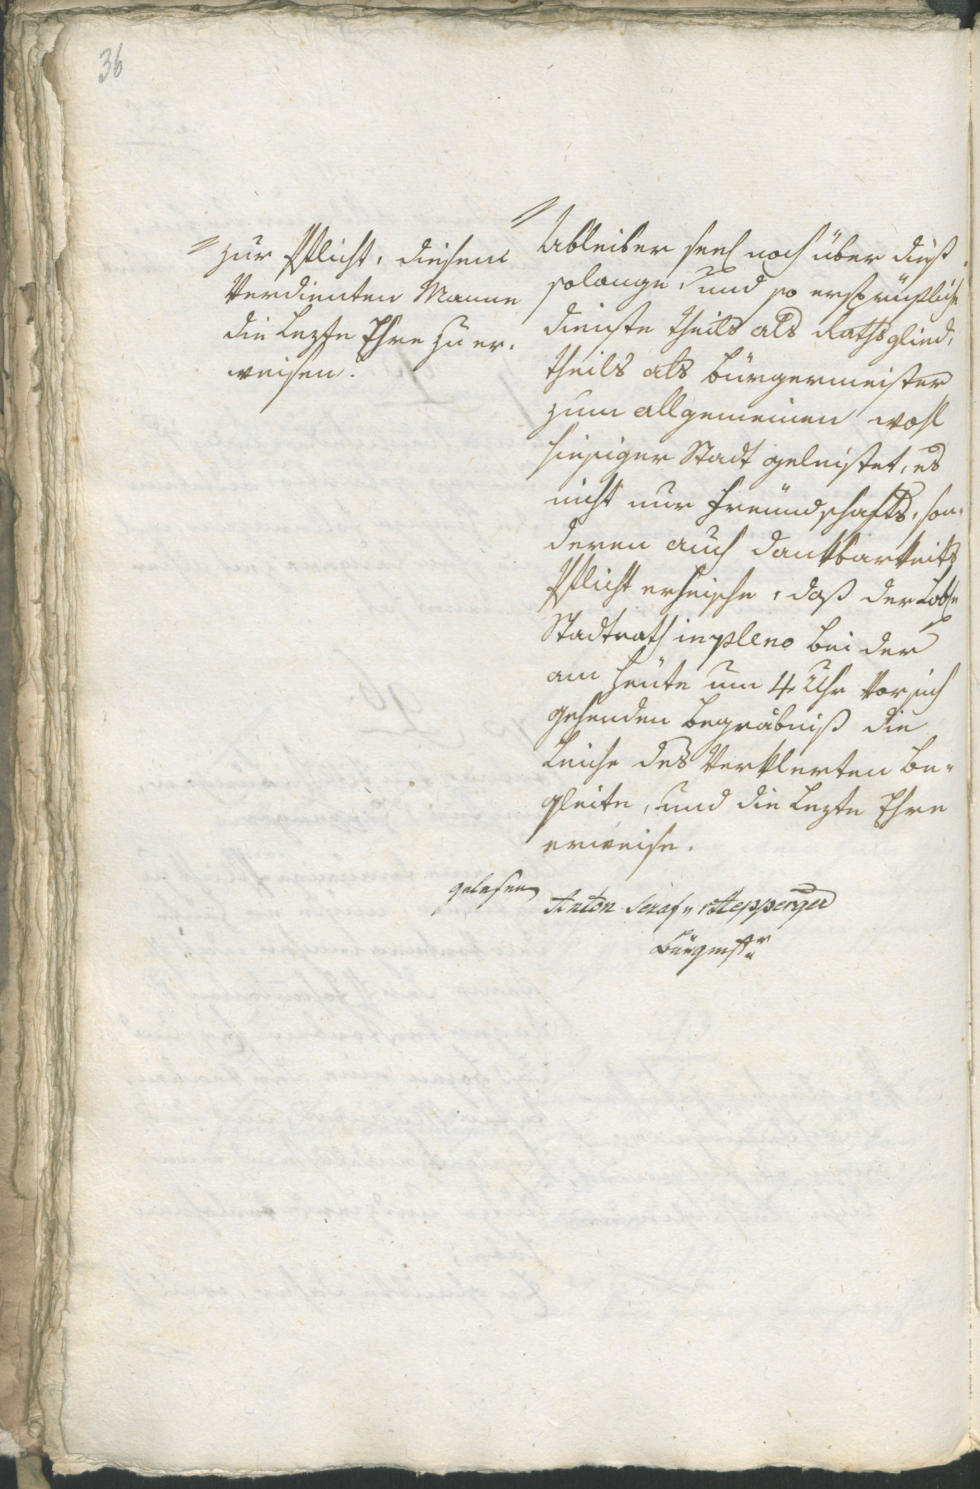 36
zur Pflicht, diesem
Verdienten Manne
die Lezte Ehre zu er-
weisen.
Ableiber seel noch über dieß
solange, und so ersprießliche
dienste theils als Rathsglied,
theils als bürgermeister
zum allgemeinen wohl
hiesiger Stadt geleistet, es
nicht nur freündschafts, son-
deren auch dankbarkeits
Pflicht erheische, daß der Löbl.
Stadtrath in pleno bei der
am heüte um 4 Uhr Vor sich
gehenden begräbniß die
Leiche des Verklerten be-
gleite, und die Lezte Ehre
erweise.
gelesen
Anton Seraf
bürgmstr